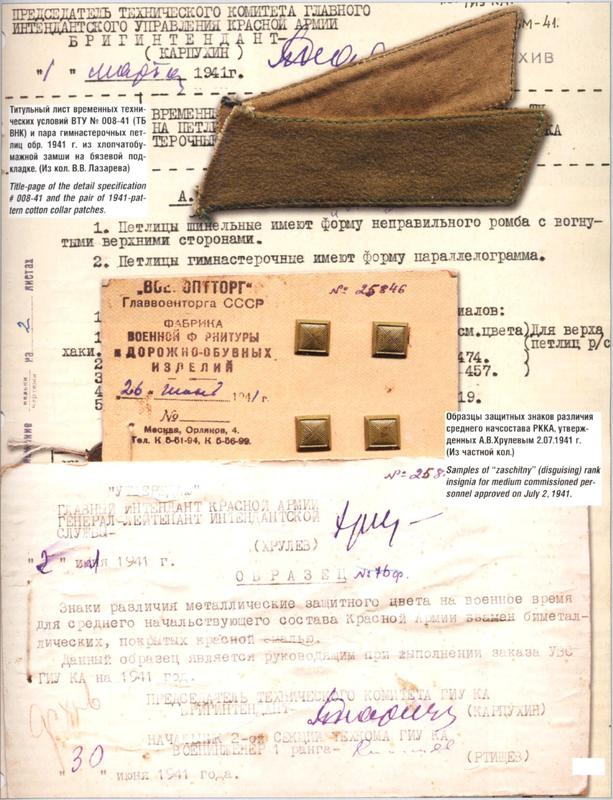 ПРЕДСЕДАТЕЛЬ ТЕХНИЧЕСКОГО КОМИТЕТА ГЛАВНОГО
ИНТЕНДАНТСКОГО УПРАВЛЕНИЯ КРАСНОЙ АРМИИ
БРИГИНТЕНДАНТ-
(КАРПУХИН)
"1" марта 1941г.
М-41.
ХИВ
Титульный лист временных техни-
ческих условий ВТУ № 008-41 (ТБ
ВНК) и пара гимнастерочных пет-
лиц обр. 1941 г. из хлопчатобу-
мажной замши на бязевой под-
кладке. (Из кол. В.В. Лазарева)
Title-page of the detail specification
# 008-41 and the pair of 1941-pat-
tern cotton collar patches.
ВРЕМЕНН
НА ПЕТЛИ
ТЕРОЧНЫ
А.
1. Петлицы шинельные имеют форму неправильного ромба с вогну-
тыми верхними сторонами.
2. Петлицы гимнастерочные имеют форму параллелограмма.
на 2 листах
"ВОЕ ОПТТОРГ"
Главвоенторга СССР
№ 25846
ФАБРИКА
ВОЕННОЙ Ф РНИТУРЫ
и ДОРОЖНО-ОБУВНЫХ
ИЗДЕЛИЙ
26 1941 г.
№
Москва, Орликов, 4.
Тел. К 5-51-94, К 5-56-99.
иалов:
см.цвета) Для верха
петлиц р/с
хаки.
474.
457.
19.
Образцы защитных знаков различия
среднего начсостава РККА, утверж-
денных А.В.Хрулевым 2.07.1941 г.
(Из частной кол.)
Samples of "zaschitny" (disguising) rank
insignia for medium commissioned per-
sonnel approved on July 2, 1941.
№ 258
"УТВЕРЖДАЮ"
ГЛАВНЫЙ ИНТЕНДАНТ КРАСНОЙ АРМИИ
ГЕНЕРАЛ-ЛЕЙТЕНАНТ ИНТЕНДАНТСКОЙ
СЛУЖБЫ-
(ХРУЛЕВ)
"2" июля 1941 г.
ОБРАЗЕЦ №76ф.
Знаки различия металлические защитного цвета на военное время
для среднего начальствующего состава Красной Армии взамен биметал-
лических, покрытых красной эмалью.
Данный образец является руководящим при выполнении заказа УВС
ГИУ КА на 1941 год.
ПРЕДСЕДАТЕЛЬ ТЕХНИЧЕСКОГО КОМИТЕТА ГИУ КА
БРИГИНТЕНДАНТ-
(КАРПУХИН)
НАЧАЛЬНИК 2-ой СЕКЦИИ ТЕХКОМА ГИУ КА
ВОЕНИНЖЕНЕР 1 ранга-
(РТИЩЕВ)
"30" июня 1941 года.